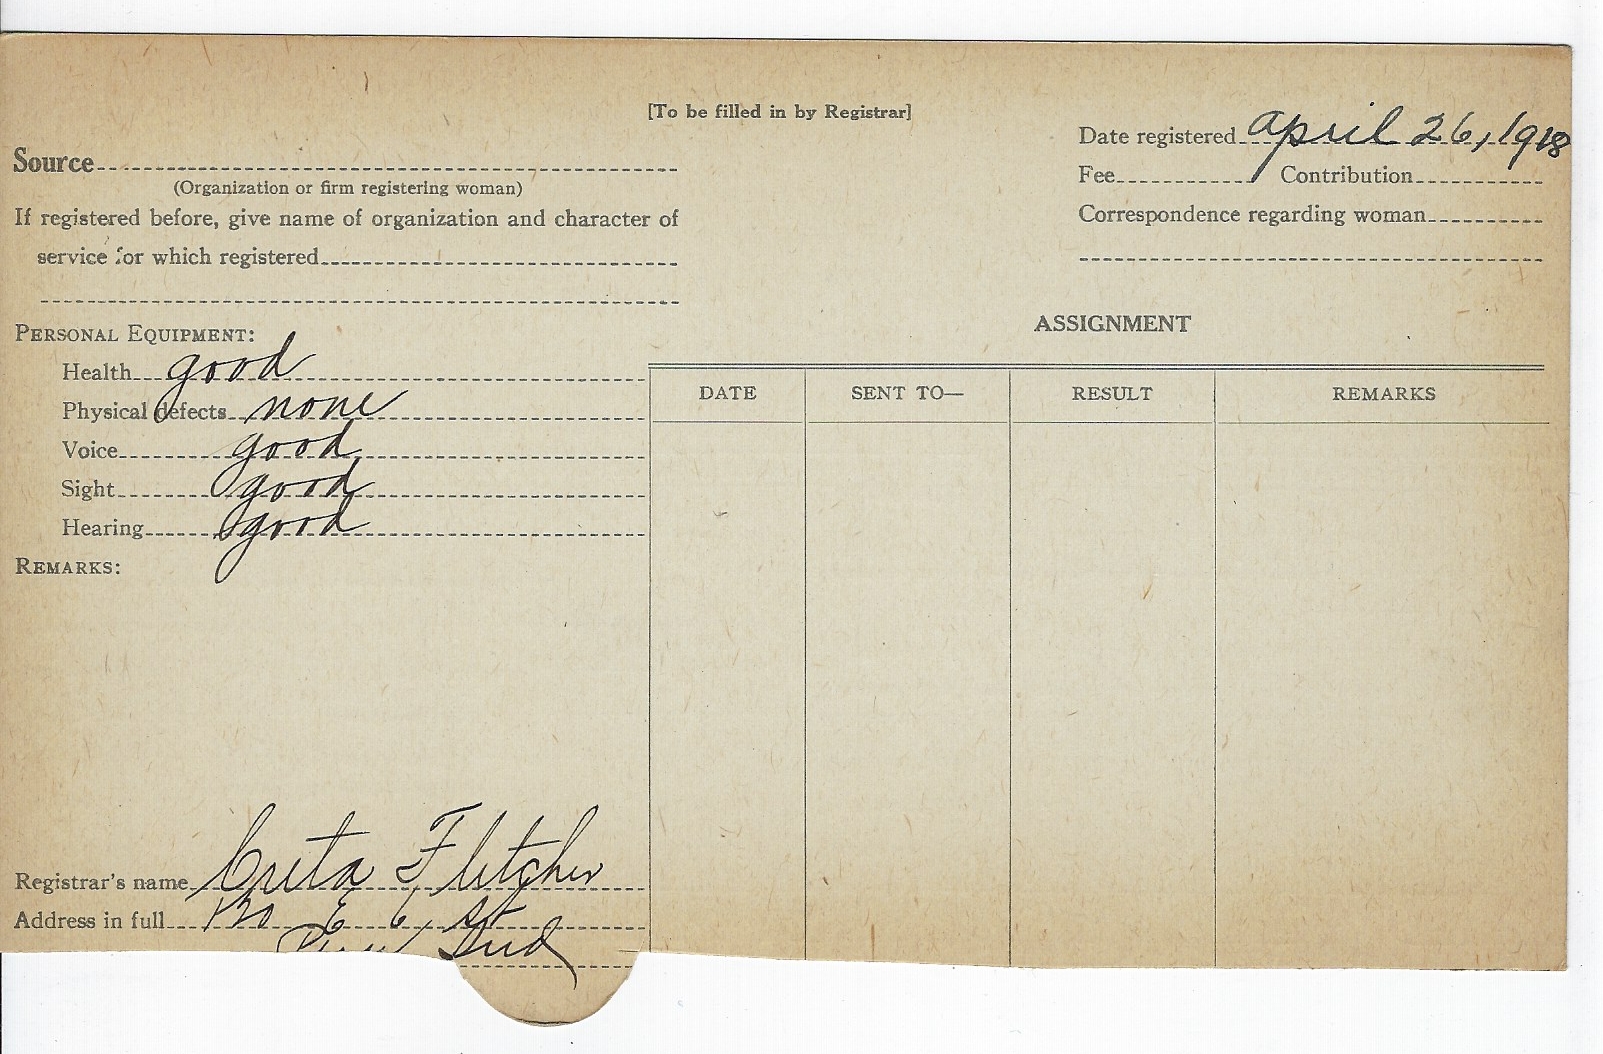 [To be filled in by Registrar]
Date registered April 26, 1918
Source
Fee Contribution
(Organization or firm registering woman)
If registered before, give name of organization and character of
Correspondence regarding woman
service for which registered
PERSONAL EQUIPMENT:
ASSIGNMENT
Health good
DATE SENT TO— RESULT REMARKS
Physical defects none
Voice good
Sight good
Hearing good
REMARKS:
Registrar's name Creta Fletcher
Address in full 130 E 6 St
Peru Ind